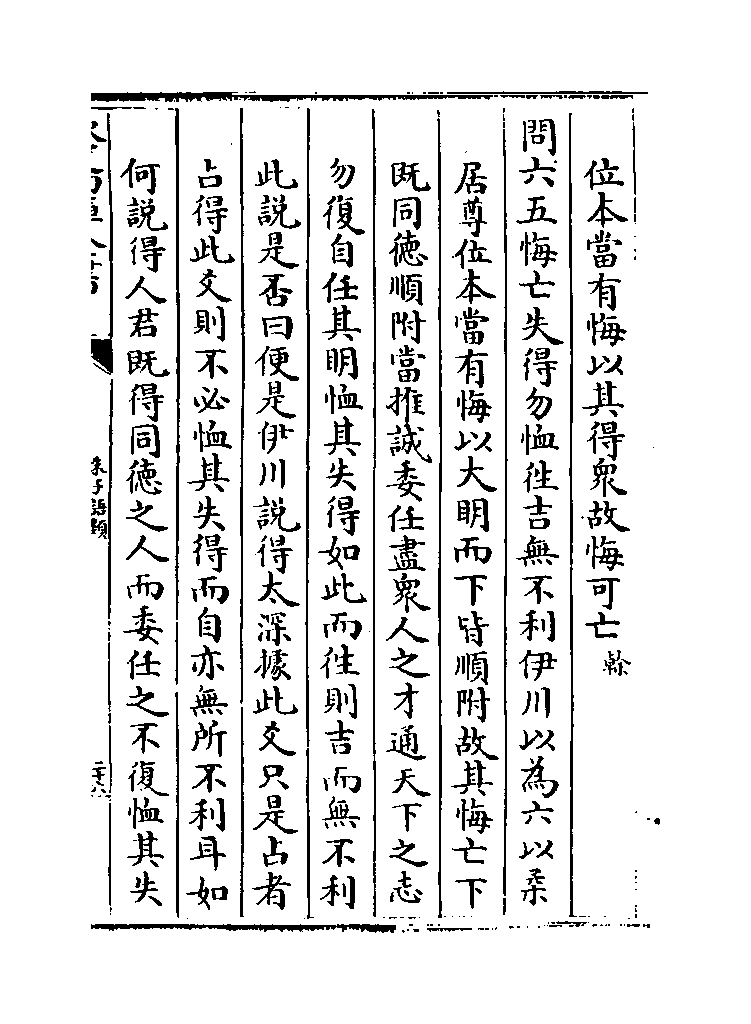 位本當有悔以其得衆故悔可亡榦
問六五悔亡失得勿恤徃吉無不利伊川以為六以柔
居尊位本當有悔以大明而下皆順附故其悔亡下
既同德順附當推誠委任盡衆人之才通天下之志
勿復自任其明恤其失得如此而徃則吉而無不利
此說是否曰便是伊川說得太深據此爻只是占者
占得此爻則不必恤其失得而自亦無所不利耳如
何說得人君既得同德之人而委任之不復恤其失
朱子語類